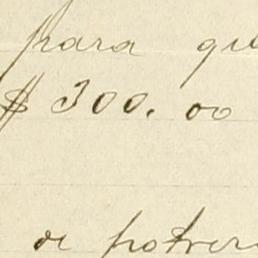 para que
$ 300. oo
de potrero